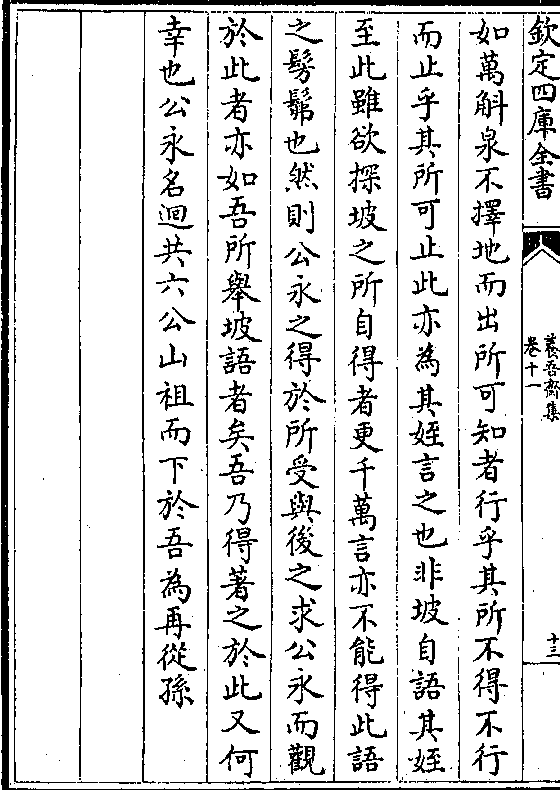 欽定四庫全書
養吾齋集
卷十一
十三
如萬斛泉不擇地而出所可知者行乎其所不得不行
而止乎其所可止此亦為其姪言之也非坡自語其姪
至此雖欲探坡之所自得者更千萬言亦不能得此語
之髣髴也然則公永之得於所受與後之求公永而觀
於此者亦如吾所舉坡語者矣吾乃得著之於此又何
幸也公永名迥共六公山祖而下於吾為再從孫